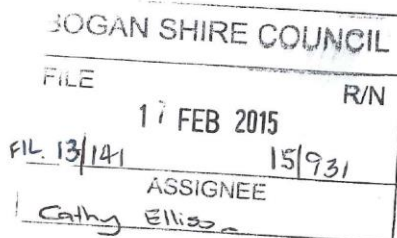 BOGAN SHIRE COUNCIL
FILE R/N
17 FEB 2015
FIL. 13/141 15/931
ASSIGNEE
Cathy Ellison